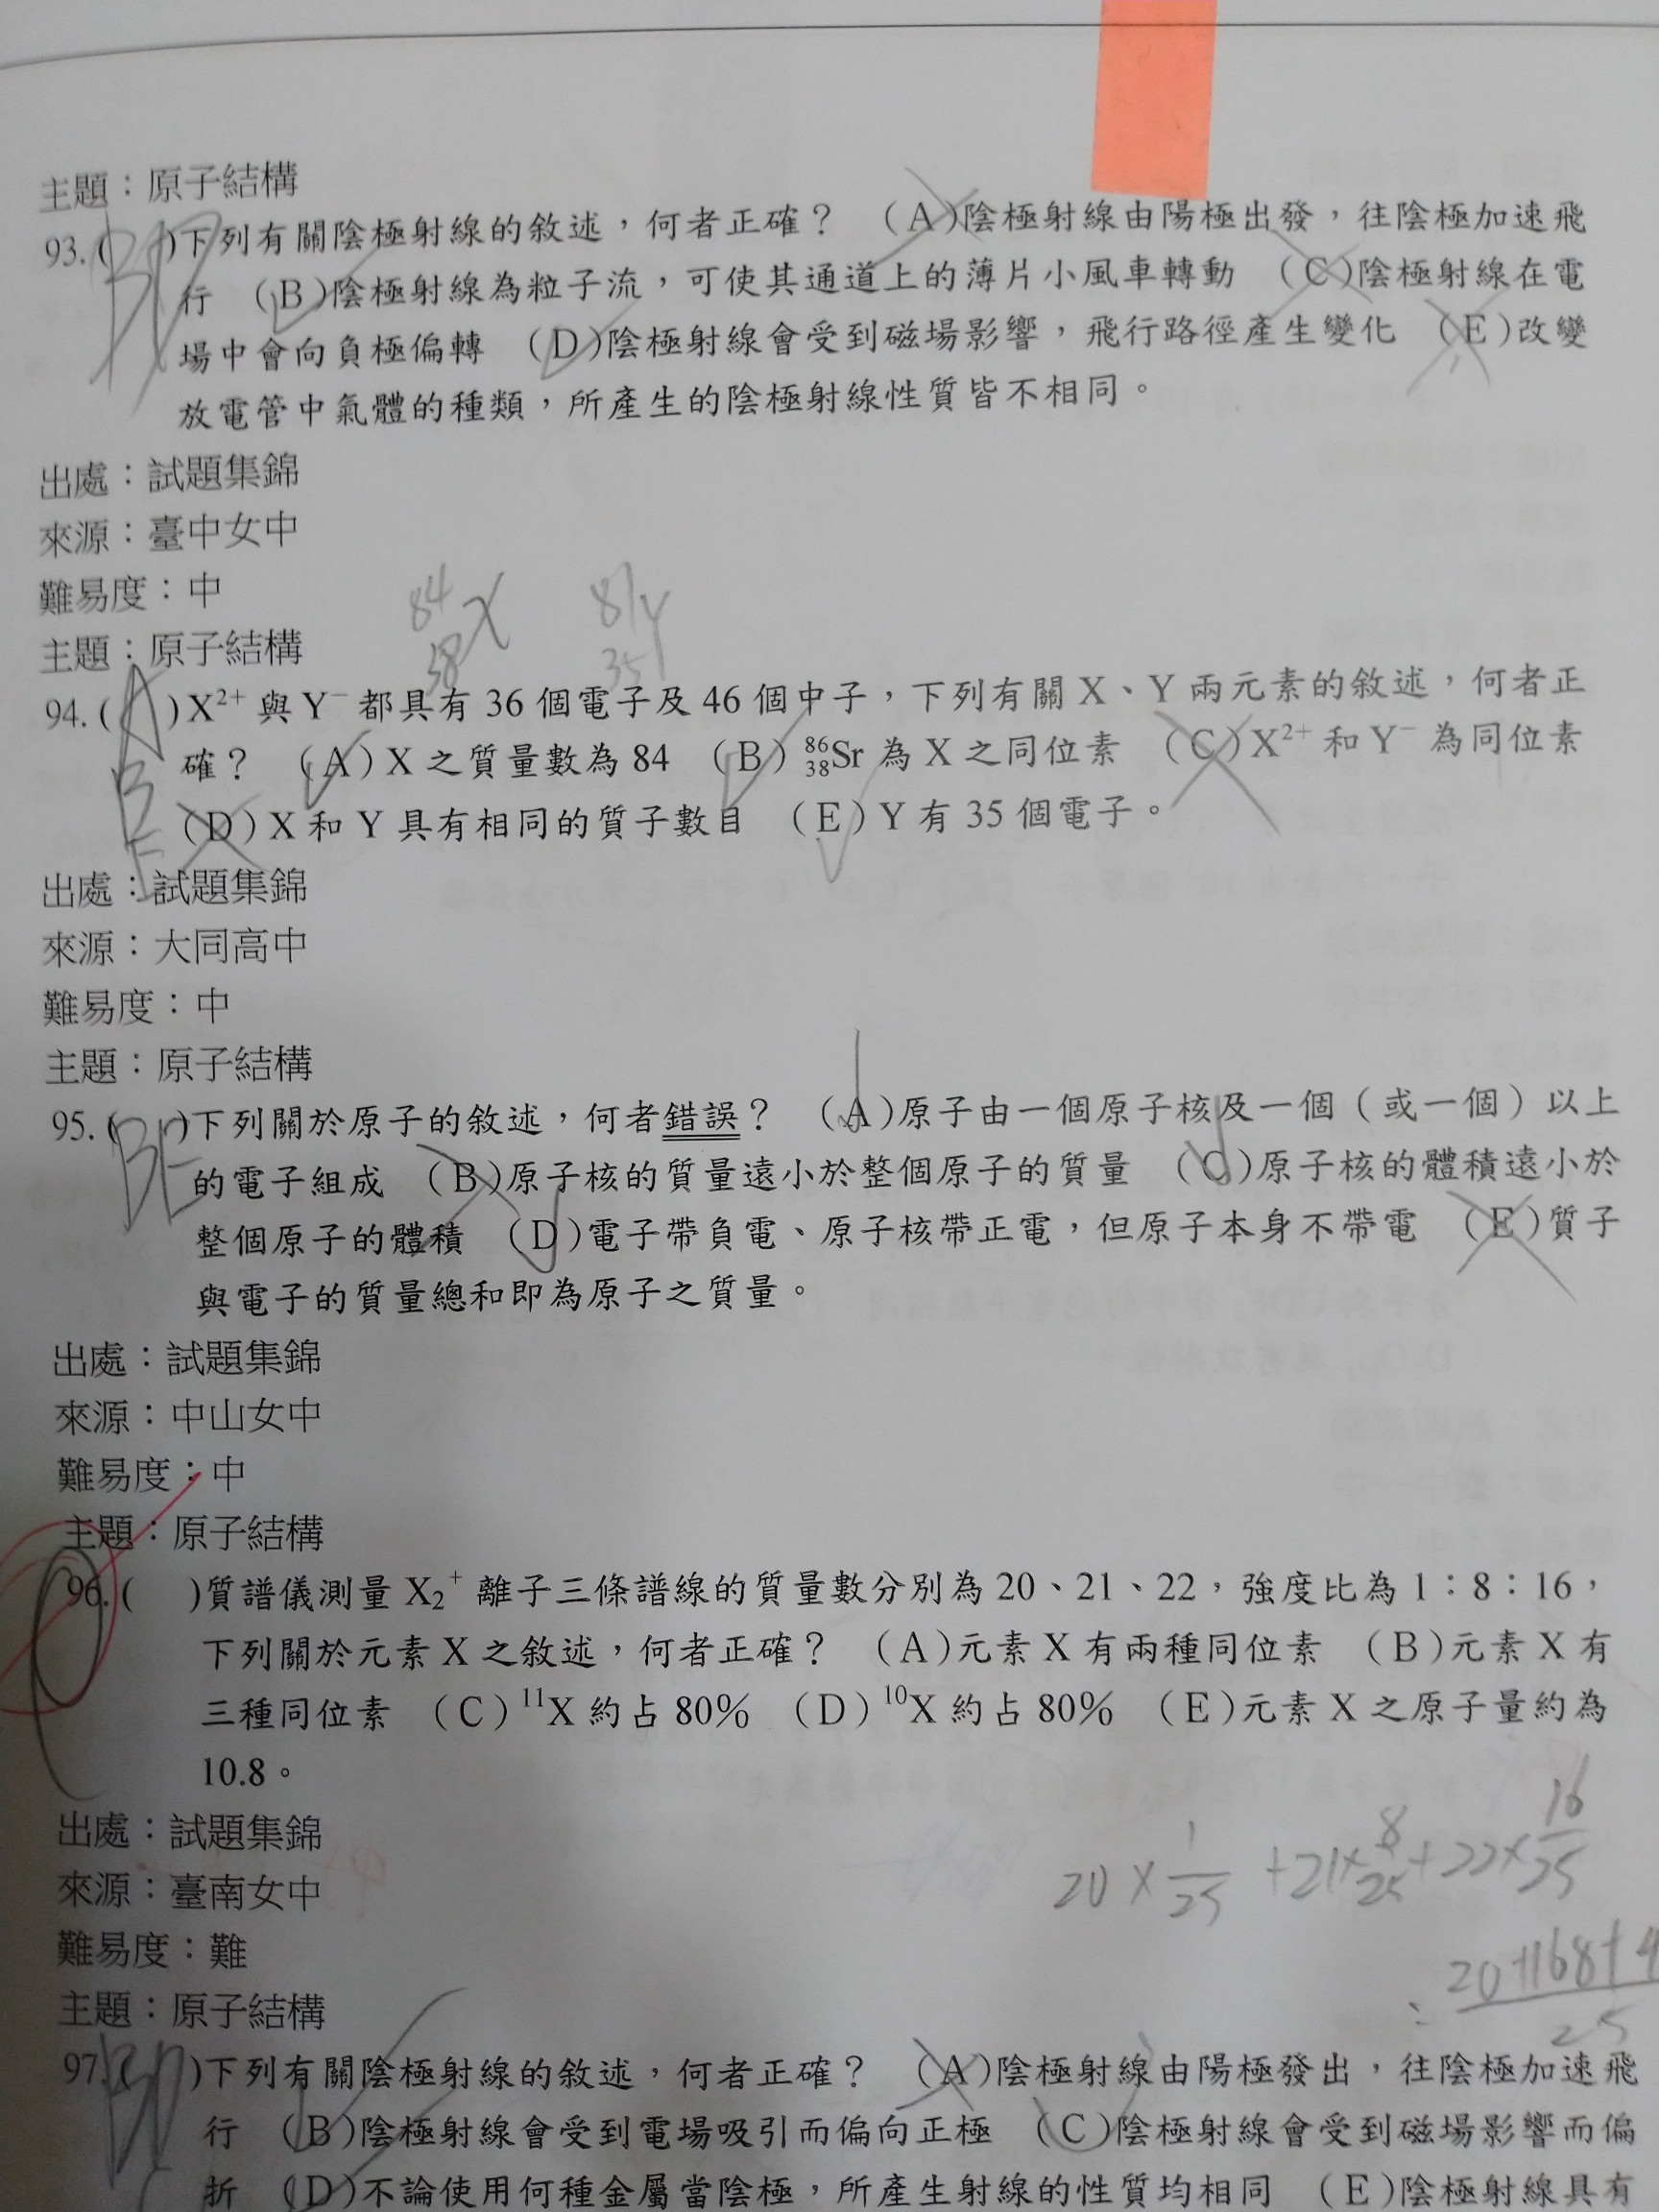 主題：原子結構
93.( BD )下列有關陰極射線的敘述，何者正確？ （A）陰極射線由陽極出發，往陰極加速飛
行 （B）陰極射線為粒子流，可使其通道上的薄片小風車轉動 （C）陰極射線在電
場中會向負極偏轉 （D）陰極射線會受到磁場影響，飛行路徑產生變化 （E）改變
放電管中氣體的種類，所產生的陰極射線性質皆不相同。
出處：試題集錦
來源：臺中女中
難易度：中
84 X 81 Y
主題：原子結構
38 35
94.( A )X²⁺ 與 Y⁻ 都具有 36 個電子及 46 個中子，下列有關 X、Y 兩元素的敘述，何者正
B 確？ （A）X 之質量數為 84 （B）⁸⁶₃₈Sr 為 X 之同位素 （C）X²⁺ 和 Y⁻ 為同位素
E （D）X 和 Y 具有相同的質子數目 （E）Y 有 35 個電子。
出處：試題集錦
來源：大同高中
難易度：中
主題：原子結構
95.( BE )下列關於原子的敘述，何者錯誤？ （A）原子由一個原子核及一個（或一個）以上
的電子組成 （B）原子核的質量遠小於整個原子的質量 （C）原子核的體積遠小於
整個原子的體積 （D）電子帶負電、原子核帶正電，但原子本身不帶電 （E）質子
與電子的質量總和即為原子之質量。
出處：試題集錦
來源：中山女中
難易度：中
主題：原子結構
96.( )質譜儀測量 X₂⁺ 離子三條譜線的質量數分別為 20、21、22，強度比為 1：8：16，
下列關於元素 X 之敘述，何者正確？ （A）元素 X 有兩種同位素 （B）元素 X 有
三種同位素 （C）¹¹X 約占 80% （D）¹⁰X 約占 80% （E）元素 X 之原子量約為
10.8。
出處：試題集錦
20 × 1/25 + 21 × 8/25 + 22 × 16/25
來源：臺南女中
難易度：難
20+168+
25
主題：原子結構
97.( )下列有關陰極射線的敘述，何者正確？ （A）陰極射線由陽極發出，往陰極加速飛
行 （B）陰極射線會受到電場吸引而偏向正極 （C）陰極射線會受到磁場影響而偏
折 （D）不論使用何種金屬當陰極，所產生射線的性質均相同 （E）陰極射線具有